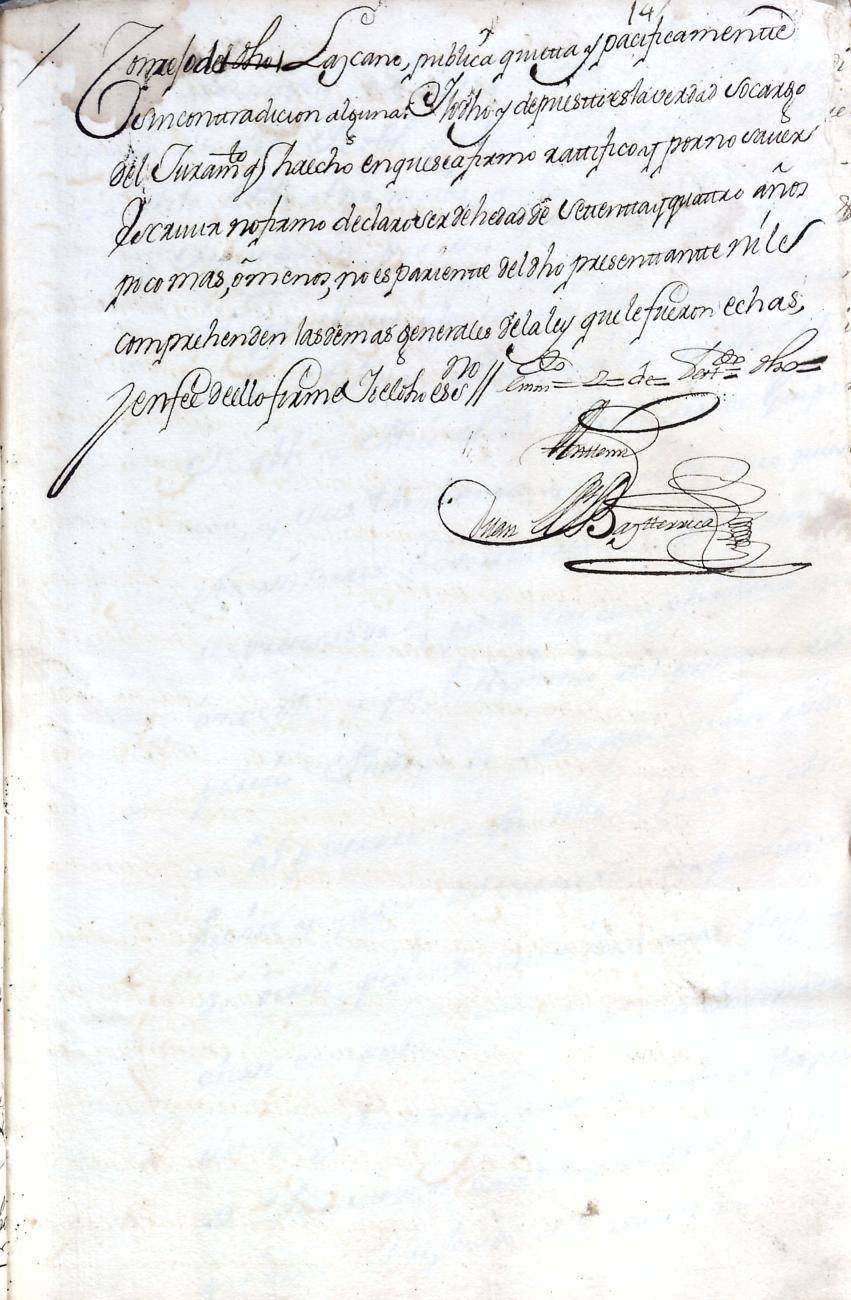 14
Conzejo de dho Lazcano, publica quietta y pacificamentte
sin contradicion alguna. Y lo dho y depuestto es la verdad so cargo
del Juramto q ha echo en que se afirmo rattifico y por no saver
escrivir no firmo declaro ser de hedad de settentta y quattro años
poco mas, o menos, no es parientte del dho presenttantte ni le
comprehenden las demas generales de la ley que le fueron echas,
y en fee de ello firme Yo el dho essno // emdo = 2 = de = dho =
Antte mi
Juan Bapta Baztterrica